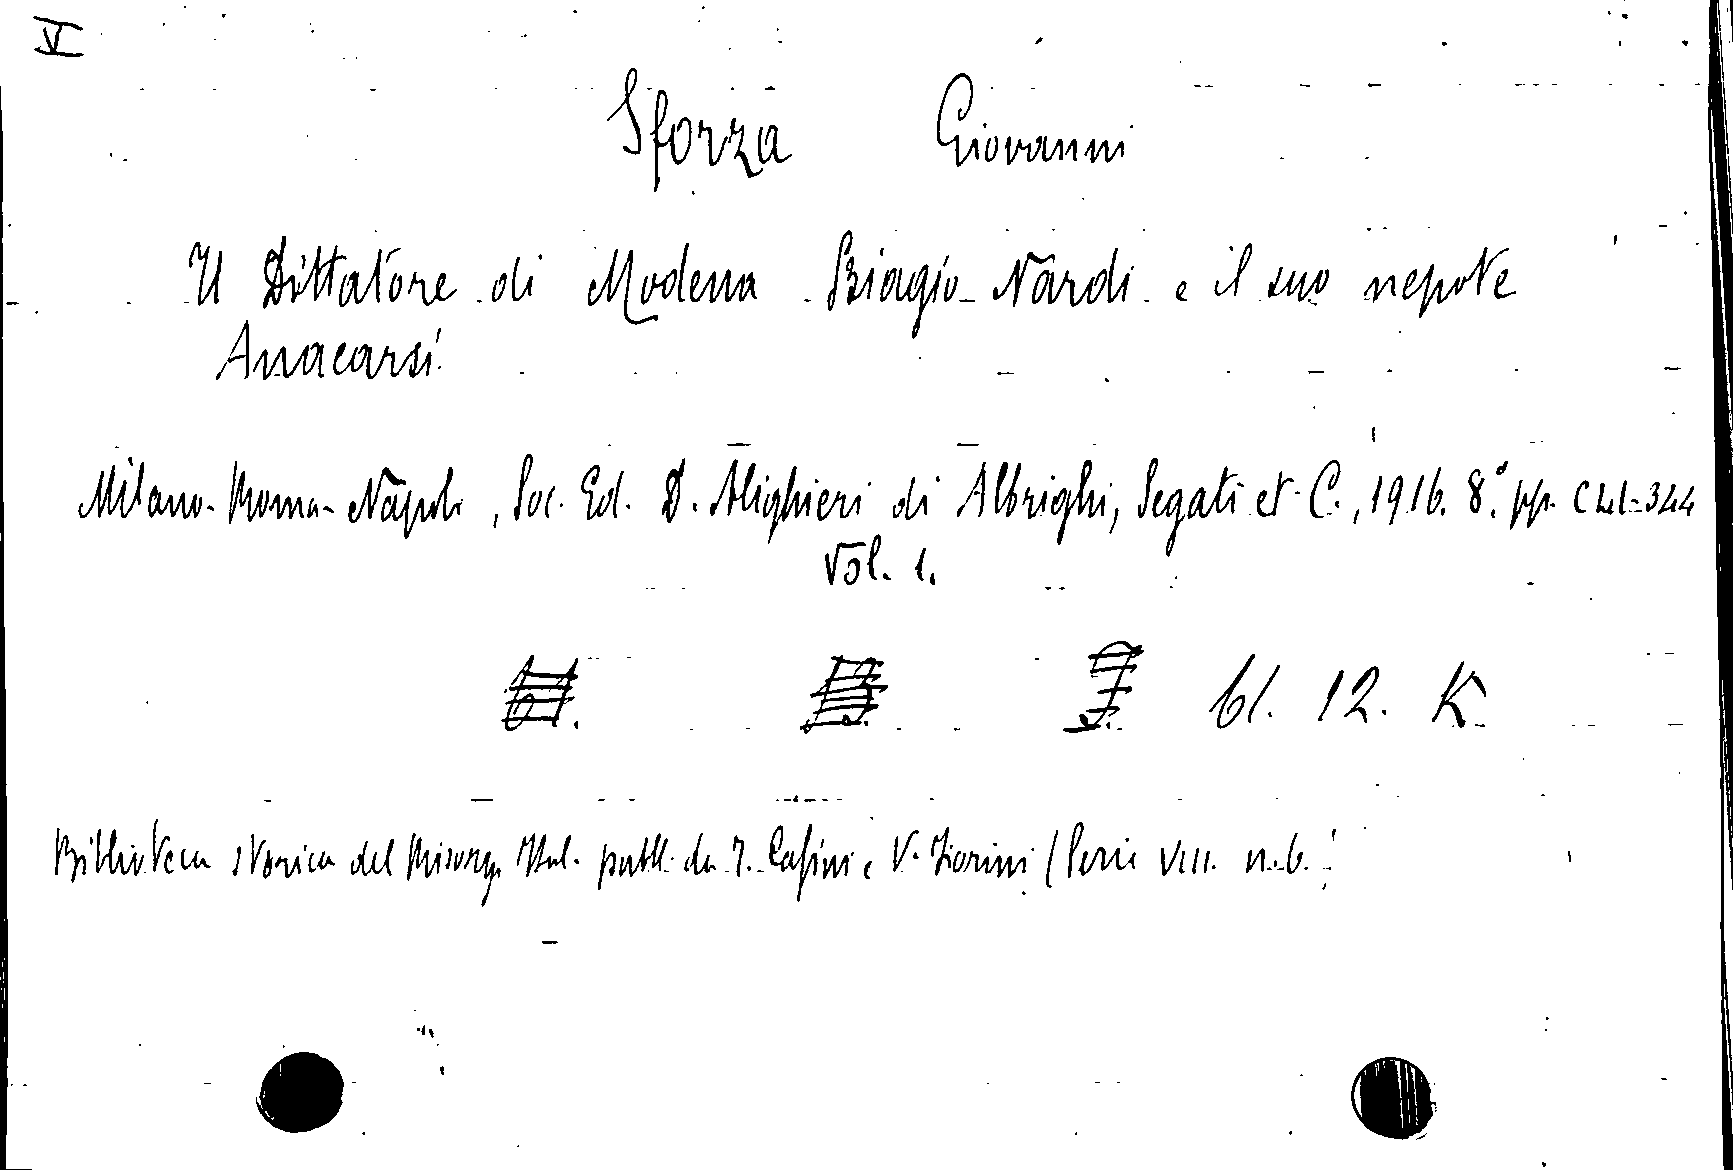 VI
Sforza Giovanni
Il Dittatore di Modena Biagio Nardi e il suo nepote
Anacarsi.
Milano-Roma-Napoli, Soc. Ed. D. Alighieri di Albrighi, Segati et C., 1916. 8.° pp. 344
Vol. 1.
61. 12. K
Biblioteca storica del Risorg. Ital. pubbl. da T. Casini e V. Fiorini (Serie VIII. n. 6.)